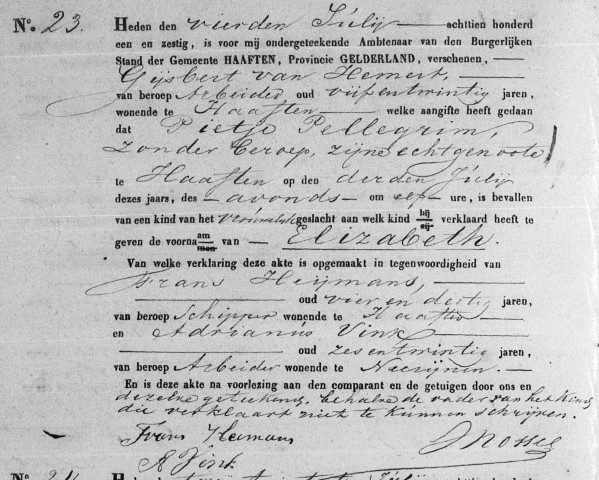 No. 23. Heden den vierden Julij achttien honderd
een en zestig, is voor mij ondergeteekende Ambtenaar van den Burgerlijken
Stand der Gemeente HAAFTEN, Provincie GELDERLAND, verschenen,
Gijsbert van Hemert,
van beroep Arbeider oud vijfentwintig jaren,
wonende te Haaften welke aangifte heeft gedaan
dat Pietje Pellegrim,
zonder beroep, zijne echtgenoote
te Haaften op den derden Julij
dezes jaars, des avonds om elf ure, is bevallen
van een kind van het vrouwelijk geslacht aan welk kind hij zij verklaard heeft te
geven de voornaam men van Elizabeth.
Van welke verklaring deze akte is opgemaakt in tegenwoordigheid van
Frans Heijmans,
oud vier en dertig jaren,
van beroep Schipper wonende te Haaften
en Adrianus Vink
oud zesentwintig jaren,
van beroep Arbeider wonende te Neerijnen.
En is deze akte na voorlezing aan den comparant en de getuigen door ons en
dezelve geteekend, behalve de vader van het kind
die verklaart niet te kunnen schrijven.
Frans Hemans
A Vink
No. 24.